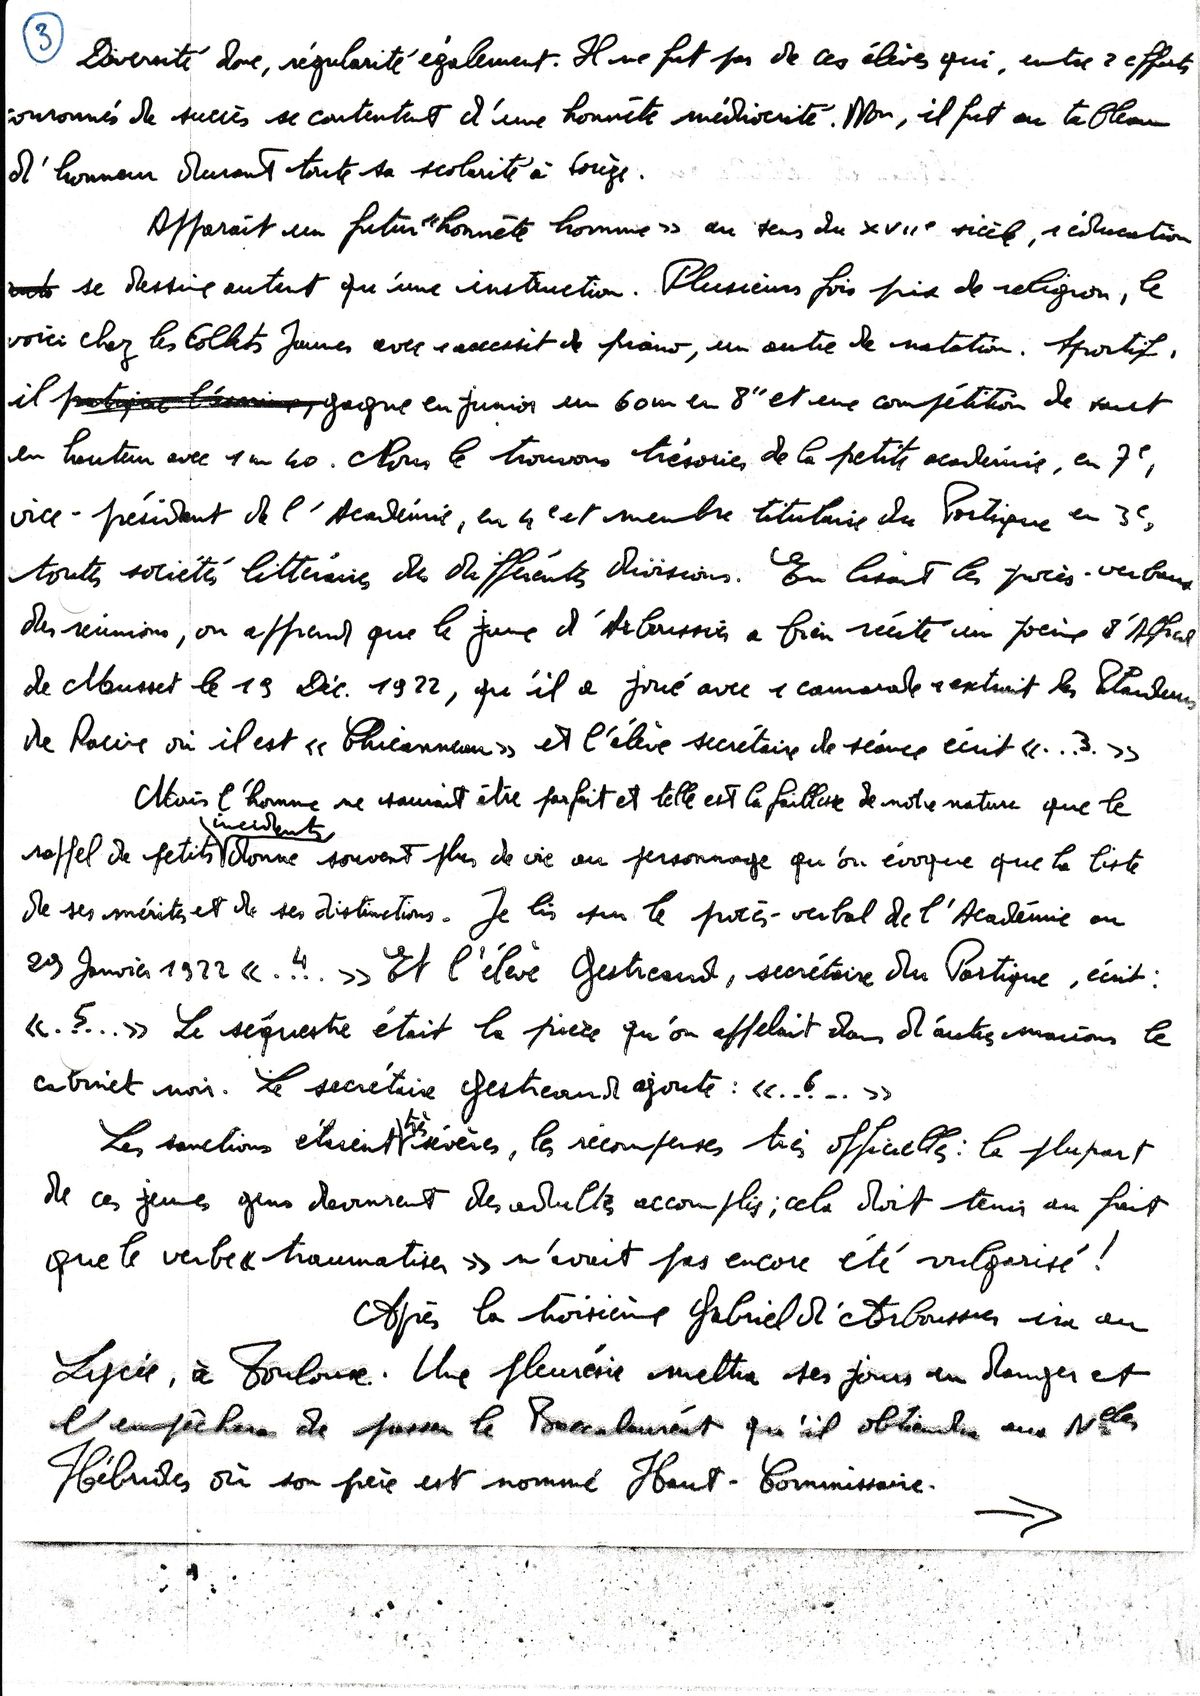 3
Diversité donc, régularité également. Il ne fut pas de ces élèves qui, entre 2 efforts
couronnés de succès se contentent d'une honnête médiocrité. Non, il fut au tableau
d'honneur durant toute sa scolarité à Sorèze.
Apparaît un futur "honnête homme» au sens du XVIIe siècle, 1 éducation
se dessine autant qu'une instruction. Plusieurs fois prix de religion, le
voici chez les Collets Jaunes avec 1 accessit de piano, un autre de natation. Sportif,
il pratique l'escrime, gagne en junior un 60m en 8" et une compétition de saut
en hauteur avec 1m40. Nous le trouvons trésorier de la petite académie, en 7e,
vice-président de l'Académie, en 4e et membre titulaire du Portique en 3e,
toutes sociétés littéraires des différentes divisions. En lisant les procès-verbaux
des réunions, on apprend que le jeune d'Arboussier a bien récité un poème d'Alfred
de Musset le 19 Déc. 1922, qu'il a joué avec 1 camarade 1 extrait les Plaideurs
de Racine où il est «Chicanneau» et l'élève secrétaire de séance écrit «..3..»
Mais l'homme ne saurait être parfait et telle est la faiblesse de notre nature que le
rappel de petits incidents donne souvent plus de vie au personnage qu'on évoque que la liste
de ses mérites et de ses distinctions. Je lis sur le procès-verbal de l'Académie au
29 Janvier 1922 «..4..» Et l'élève Gestreaud, secrétaire du Portique, écrit :
«..5...» Le séquestre était la pièce qu'on appelait dans d'autres maisons le
cabinet noir. Le secrétaire Gestreaud ajoute : «..6...»
Les sanctions étaient très sévères, les récompenses très officielles : la plupart
de ces jeunes gens devinrent des adultes accomplis ; cela doit tenir au fait
que le verbe « traumatiser » n'avait pas encore été vulgarisé !
Après la troisième Gabriel d'Arboussier ira au
Lycée, à Toulouse. Une pleurésie mettra ses jours en danger et
l'empêchera de passer le Baccalauréat qu'il obtiendra aux Nelles
Hébrides où son père est nommé Haut-Commissaire.
→